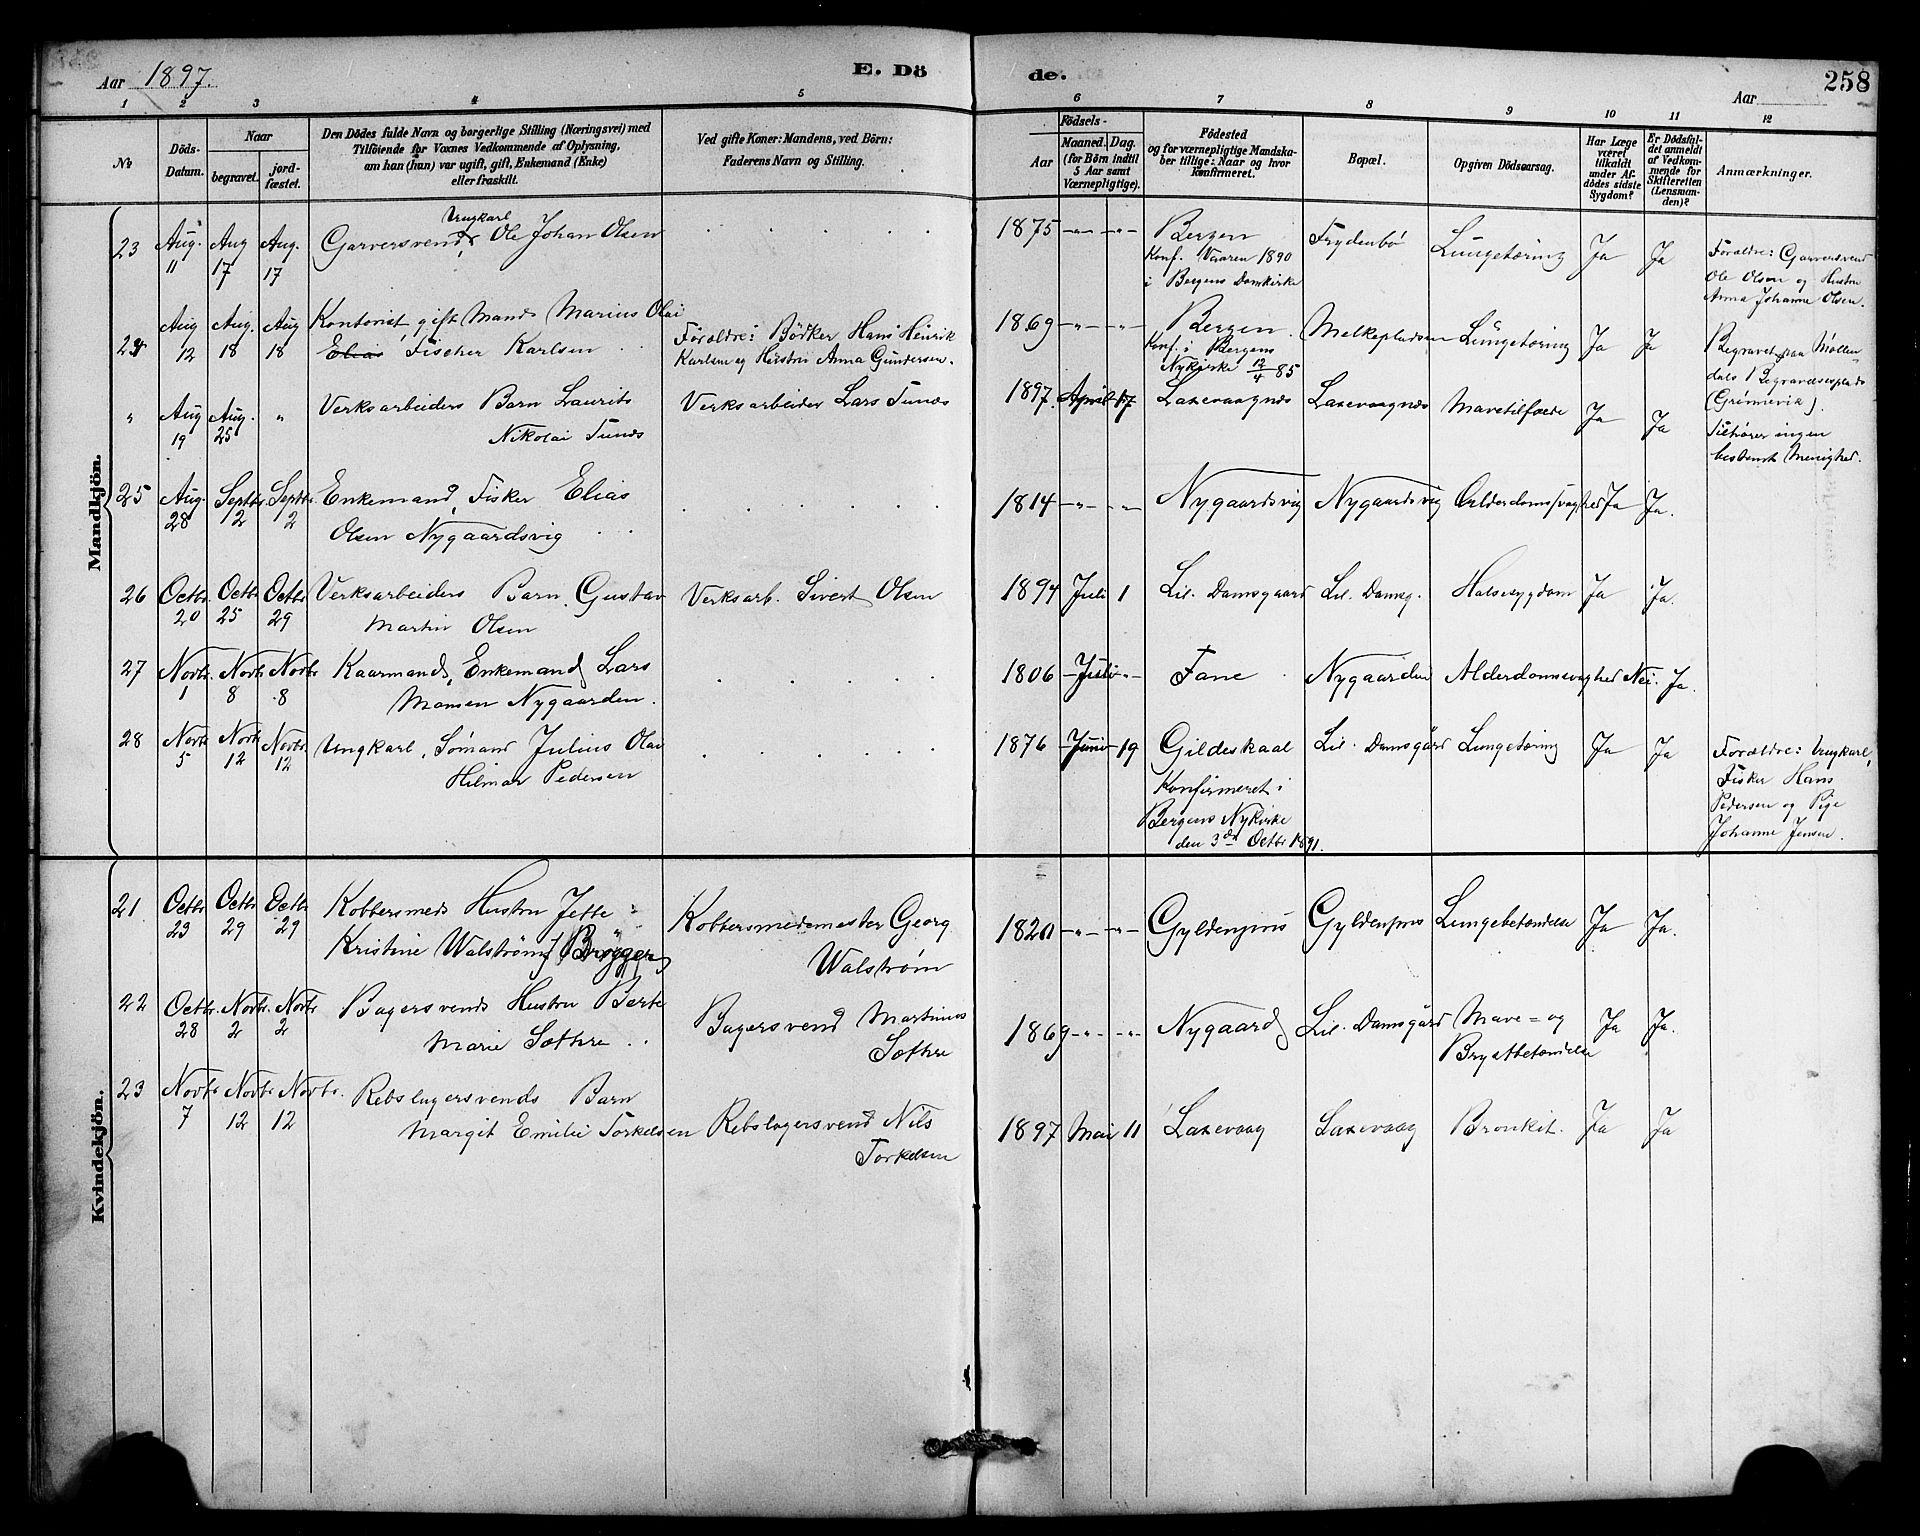 Aar 1897.
E. Dö
de.
Aar
258
1 2 3 4 5 6 7 8 9 10 11 12
No
Döds-
Datum.
Naar
begravet.
jord-
fæstet.
Den Dödes fulde Navn og borgerlige Stilling (Næringsvei) med
Tilföiende for Voxnes Vedkommende af Oplysning,
om han (hun) var ugift, gift, Enkemand (Enke)
eller fraskilt.
Ved gifte Koner: Mandens, ved Börn:
Faderens Navn og Stilling.
Födsels-
Aar
Maaned. Dag.
(for Börn indtil
5 Aar samt
Værnepligtige).
Födested
og for værnepligtige Mandska-
ber tillige: Naar og hvor
Konfirmeret.
Bopæl.
Opgiven Dödsaarsag.
Har Læge
været
tilkaldt
under Af-
dödes sidste
Sygdom?
Er Dödsfal-
det anmeldt
af Vedkom-
mende for
Skifteretten
(Lensman-
den)?
Anmærkninger.
Mandkjön.
23 Aug. 11 Aug 17 Aug. 17
Ungkarl
Garversvend, Ole Johan Olsen
1875 -"- -"-
Bergen
Konf. Vaaren 1890
i Bergens Domkirke
Frydenbø
Lungetæring Ja Ja
Forældre: Garversvend
Ole Olsen og Hustru
Anna Johanne Olsen.
24 Aug 12 Aug. 18 Aug 18
Kontorist, gift Mand Marius Olai
Elias Fischer Karlsen
Forældre: Bödker Hans Henrik
Karlsen og Hustru Anna Gundersen.
1869 -"- -"-
Bergen.
Konf. i Bergens
Nykirke 12/4 85
Melkepladsen
Lungetæring Ja Ja
Begravet paa Møllen-
dals Begravelsesplads
(Grønnevik).
Tilhører ingen
bestemt Menighed.
" Aug 19 Aug. 25 "
Verksarbeiders Barn Laurits
Nikolai Tunæs
Verksarbeider Lars Tunæs
1897. April 17
Laxevaagnæs
Laxevaagnæs
Mavetilfælde Ja Ja
25 Aug. 28 Septbr. 2 Septbr. 2
Enkemand, Fisker Elias
Olsen Nygaardsvig
1814 -"- -"-
Nygaardsvig
Nygaardsvig
Alderdomssvaghed Ja Ja.
26 Octbr. 20 Octbr. 25 Octbr. 29
Verksarbeiders Barn Gustav
Martin Olsen
Verksarb. Sivert Olsen
1894 Juli 1
Lil. Damsgaard
Lil. Damsg.
Halssygdom Ja Ja.
27 Novbr. 1 Novbr. 8 Novbr. 8
Kaarmand, Enkemand Lars
Monsen Nygaarden.
1806 Juli -"-
Fane
Nygaarden
Alderdomssvaghed Nei. Ja.
28 Novbr. 5 Novbr. 12 Novbr. 12
Ungkarl, Sømand Julius Olai
Hilmar Pedersen
1876 Juni 19
Gildeskaal
Konfirmeret i
Bergens Nykirke
den 3de Octbr 1891.
Lil. Damsgård
Lungetæring Ja Ja
Forældre: Ungkarl,
Fisker Hans
Pedersen og Pige
Johanne Jensen.
Kvindekjön.
21. Octbr. 23 Octbr. 29 Octbr. 29
Kobbersmeds Hustru Jette
Kristine Walstrøm f. Brøgger
Kobbersmedemester Georg
Walstrøm
1820 -"- -"-
Gyldenpris
Gyldenpris
Lungebetændelse Ja Ja.
22 Octbr. 28 Novbr. 2 Novbr. 2
Bagersvends Hustru Berte
Marie Sæthre
Bagersvend Martinus
Sæthre
1869 -"- -"-
Nygaard
Lil. Damsgård
Mave= og
Brystbetændelse Ja Ja.
23 Novbr. 7 Novbr. 12 Novbr. 12
Rebslagersvends Barn
Margit Emilie Torkelsen
Rebslagersvend Nils
Torkelsen
1897 Mai 11
Laxevaag
Laxevaag
Bronkit. Ja Ja